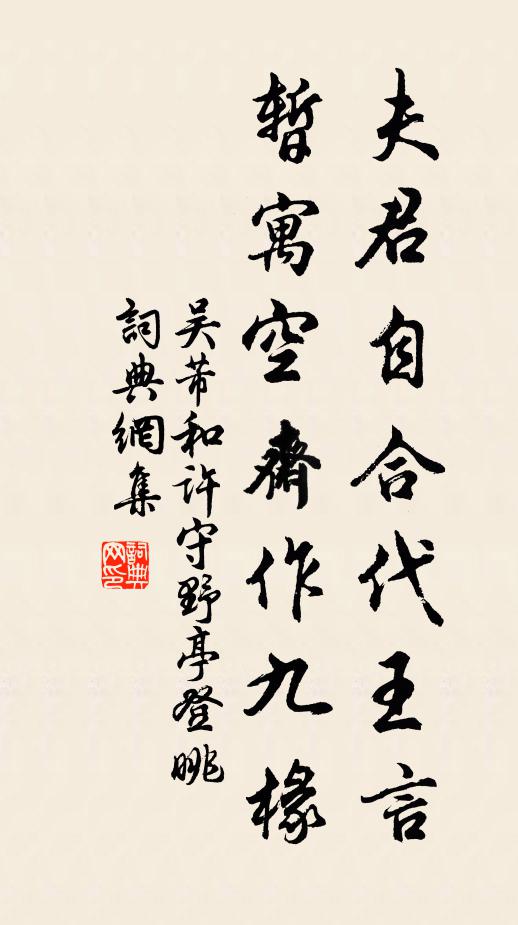 夫君自合代王言
暫寓空齋作九椽
吴芾和許守野亭登眺
詞典網集
詞典网印